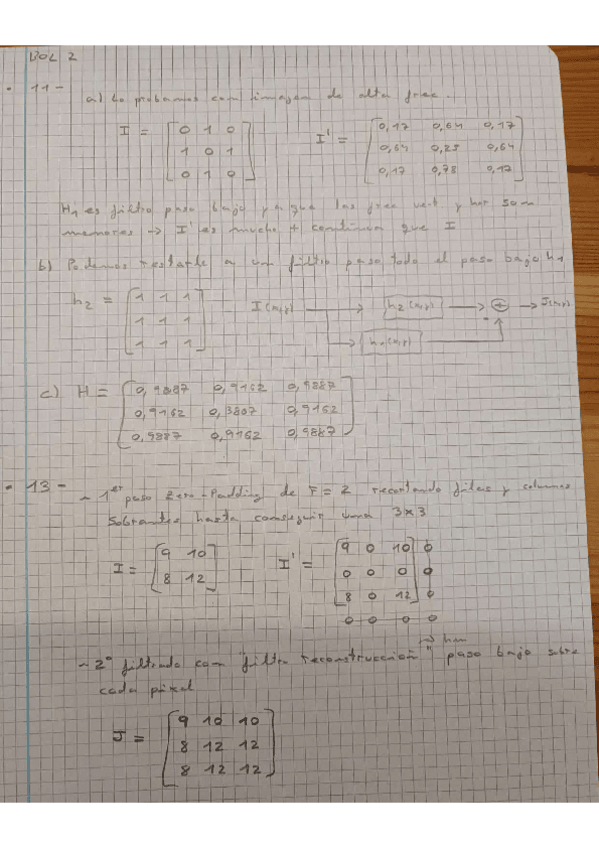 BOL 2
- 11 -
a) Lo probamos con imagen de alta frec.
I = [0 1 0
1 0 1
0 1 0]
I' = [0,17 0,64 0,17
0,64 0,25 0,64
0,17 0,78 0,17]
H1 es filtro paso bajo ya que las frec vert y hor son
menores → I' es mucho + continua que I
b) Podemos restarle a un filtro paso todo el paso bajo h1
h2 = [1 1 1
1 1 1
1 1 1]
I(x,y) → h2(x,y) → + → J(x,y)
→ h1(x,y) -
c) H = [0,9887 0,9162 0,9887
0,9162 0,3807 0,9162
0,9887 0,9162 0,9887]
- 13 - ~ 1er paso Zero-Padding de F = 2 recortando filas y columnas
sobrantes hasta conseguir una 3x3
I = [9 10
8 12]
I' = [9 0 10] 0
0 0 0 0
8 0 12 0
0 0 0 0
~ 2º filtrado con "filtro reconstrucción" paso bajo sobre
cada pixel
J = [9 10 10
8 12 12
8 12 12]